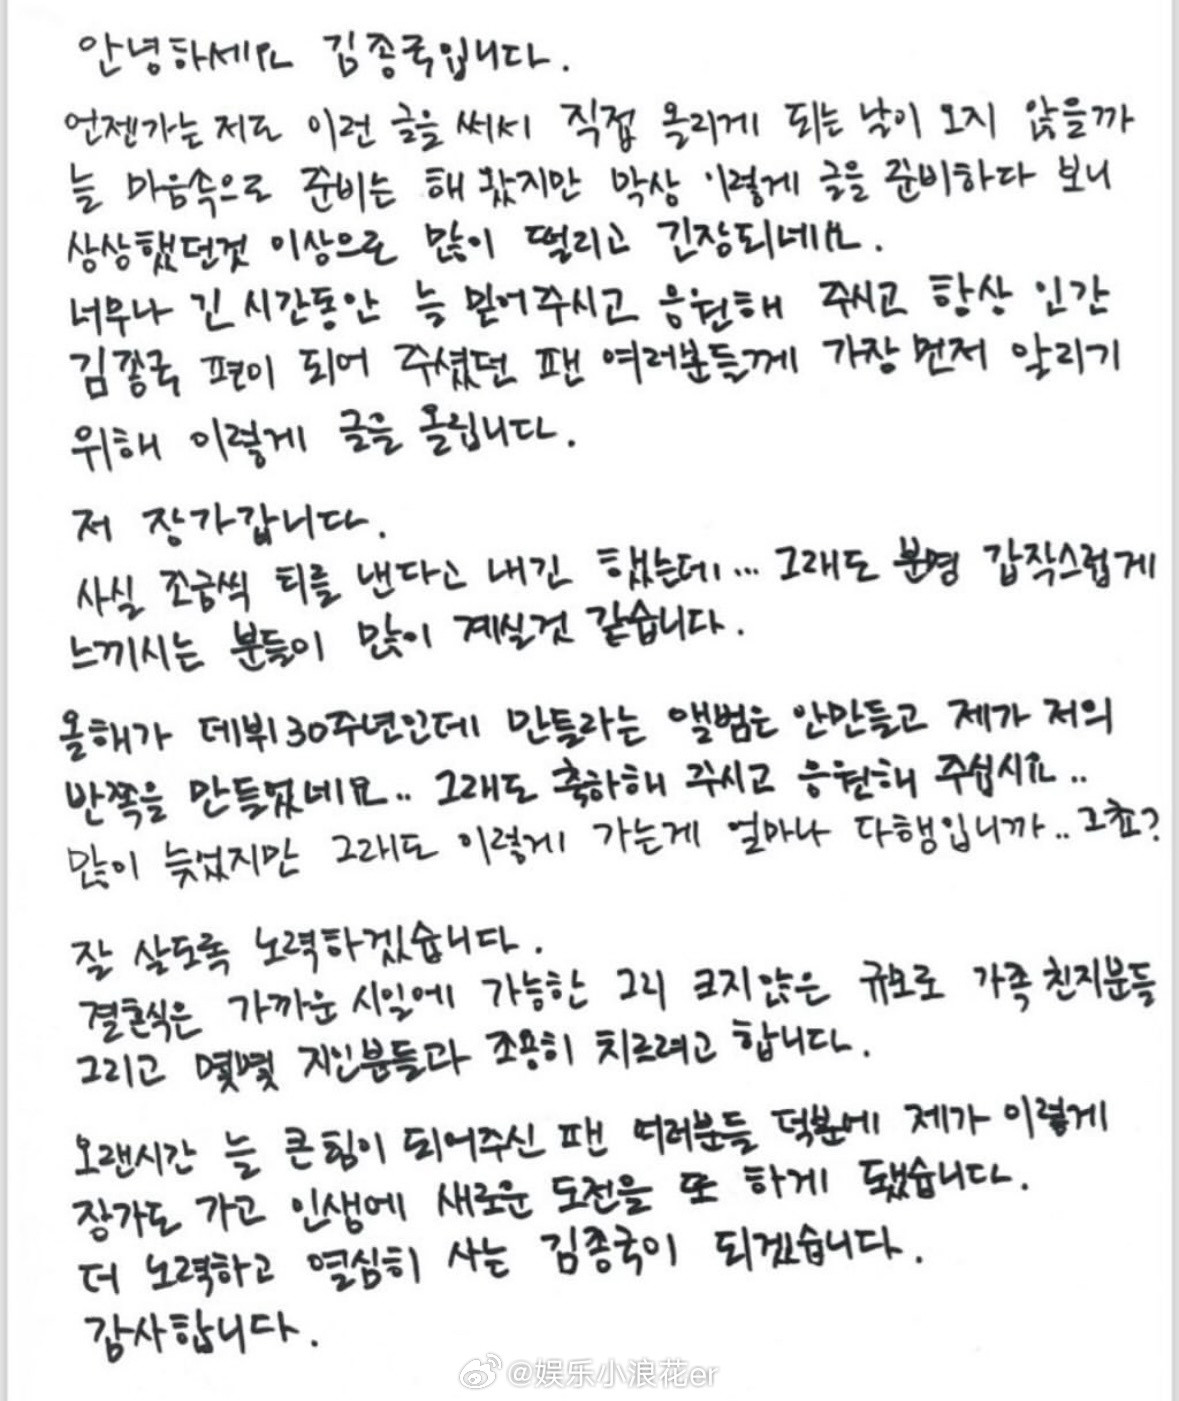 안녕하세요 김종국입니다.
언젠가는 저도 이런 글을 써서 직접 올리게 되는 날이 오지 않을까
늘 마음속으로 준비는 해 왔지만 막상 이렇게 글을 준비하다 보니
상상했던것 이상으로 많이 떨리고 긴장되네요.
너무나 긴 시간동안 늘 믿어주시고 응원해 주시고 항상 인간
김종국 편이 되어 주셨던 팬 여러분들께 가장 먼저 알리기
위해 이렇게 글을 올립니다.
저 장가갑니다.
사실 조금씩 티를 낸다고 내긴 했는데... 그래도 분명 갑작스럽게
느끼시는 분들이 많이 계실것 같습니다.
올해가 데뷔 30주년인데 만들라는 앨범은 안만들고 제가 저의
반쪽을 만들었네요.. 그래도 축하해 주시고 응원해 주십시요..
많이 늦었지만 그래도 이렇게 가는게 얼마나 다행입니까.. 그쵸?
잘 살도록 노력하겠습니다.
결혼식은 가까운 시일에 가능한 그리 크지않은 규모로 가족 친지분들
그리고 몇몇 지인분들과 조용히 치르려고 합니다.
오랜시간 늘 큰 힘이 되어주신 팬 여러분들 덕분에 제가 이렇게
장가도 가고 인생에 새로운 도전을 또 하게 됐습니다.
더 노력하고 열심히 사는 김종국이 되겠습니다.
감사합니다.
@娱乐小浪花er